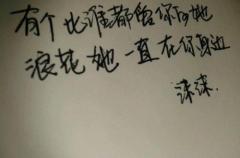 有个比谁都信你的她
浪花 她一直在你身边
沫沫.